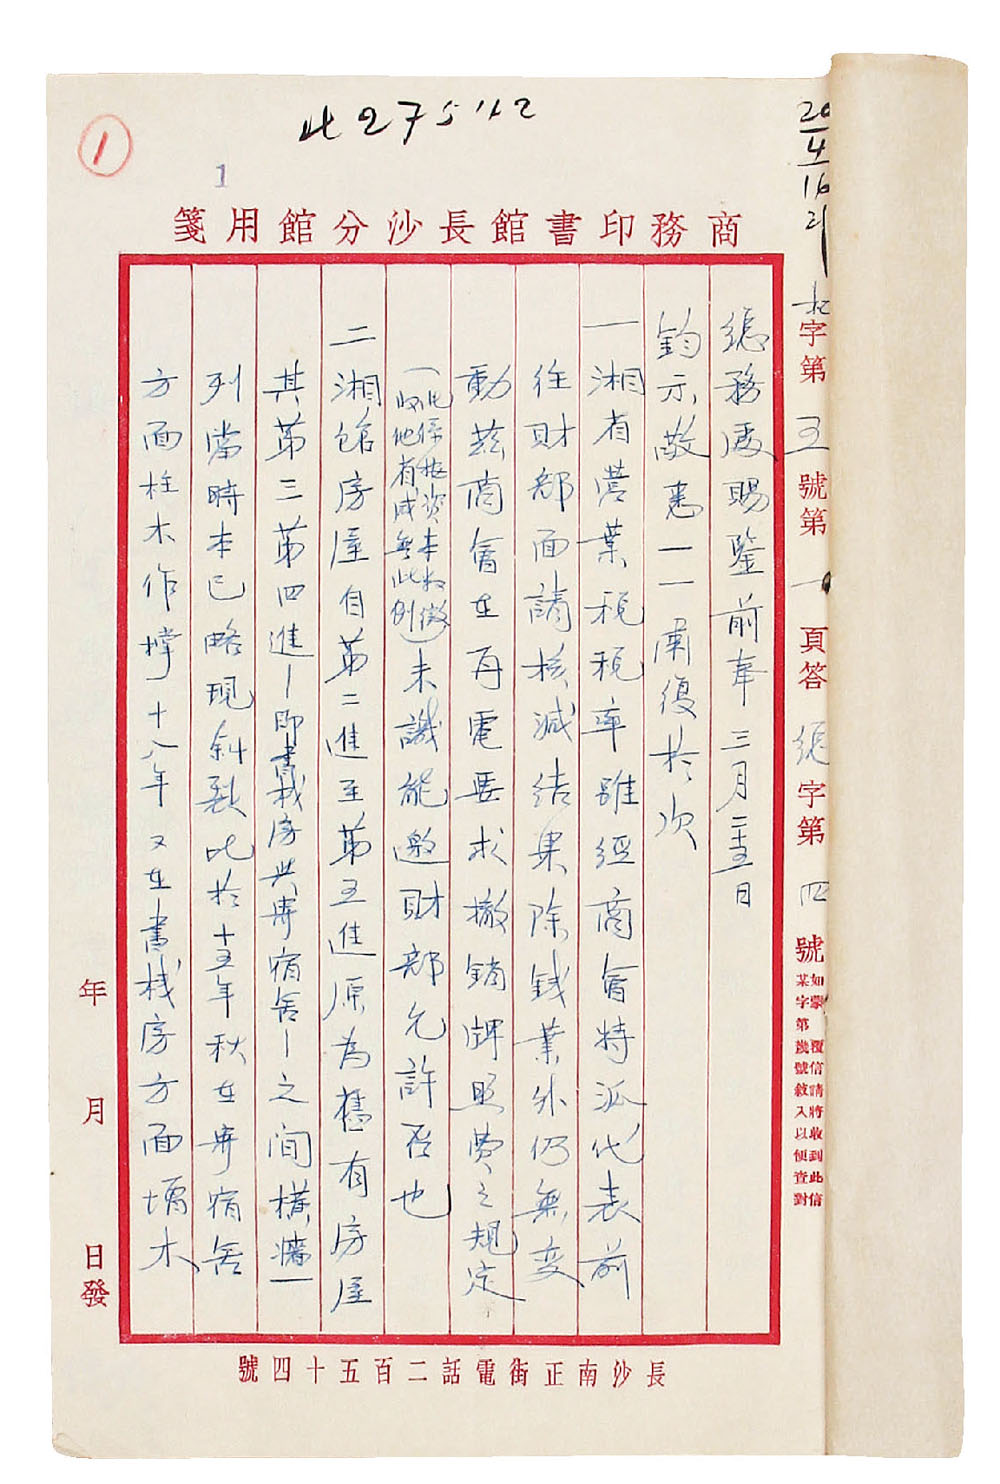 427542
1
1
商務印書館長沙分館用箋
20/4 16
字第 五 號第 一 頁答 總 字第 四 號
如蒙覆信請將收到此信
某字第幾號敘入以便查對
總務處賜鑒前奉三月二十五日
鈞示敬悉一一肅復於次
一湘省營業稅稅率雖經商會特派代表前
往財部面請核減結果除錢業外仍無變
動茲商會在再電要求撤銷牌照費之規定
(此係按資本收徵
收他省咸無此例)未識能邀財部允許否也
二湘館房屋自第二進至第五進原為舊有房屋
其第三第四進—即書棧房與寄宿舍—之間橫牆一
列當時本已略現斜裂此於十五年秋在寄宿舍
方面柱木作撐十八年又在書棧房方面 木
年 月 日發
長沙南正街電話二百五十四號